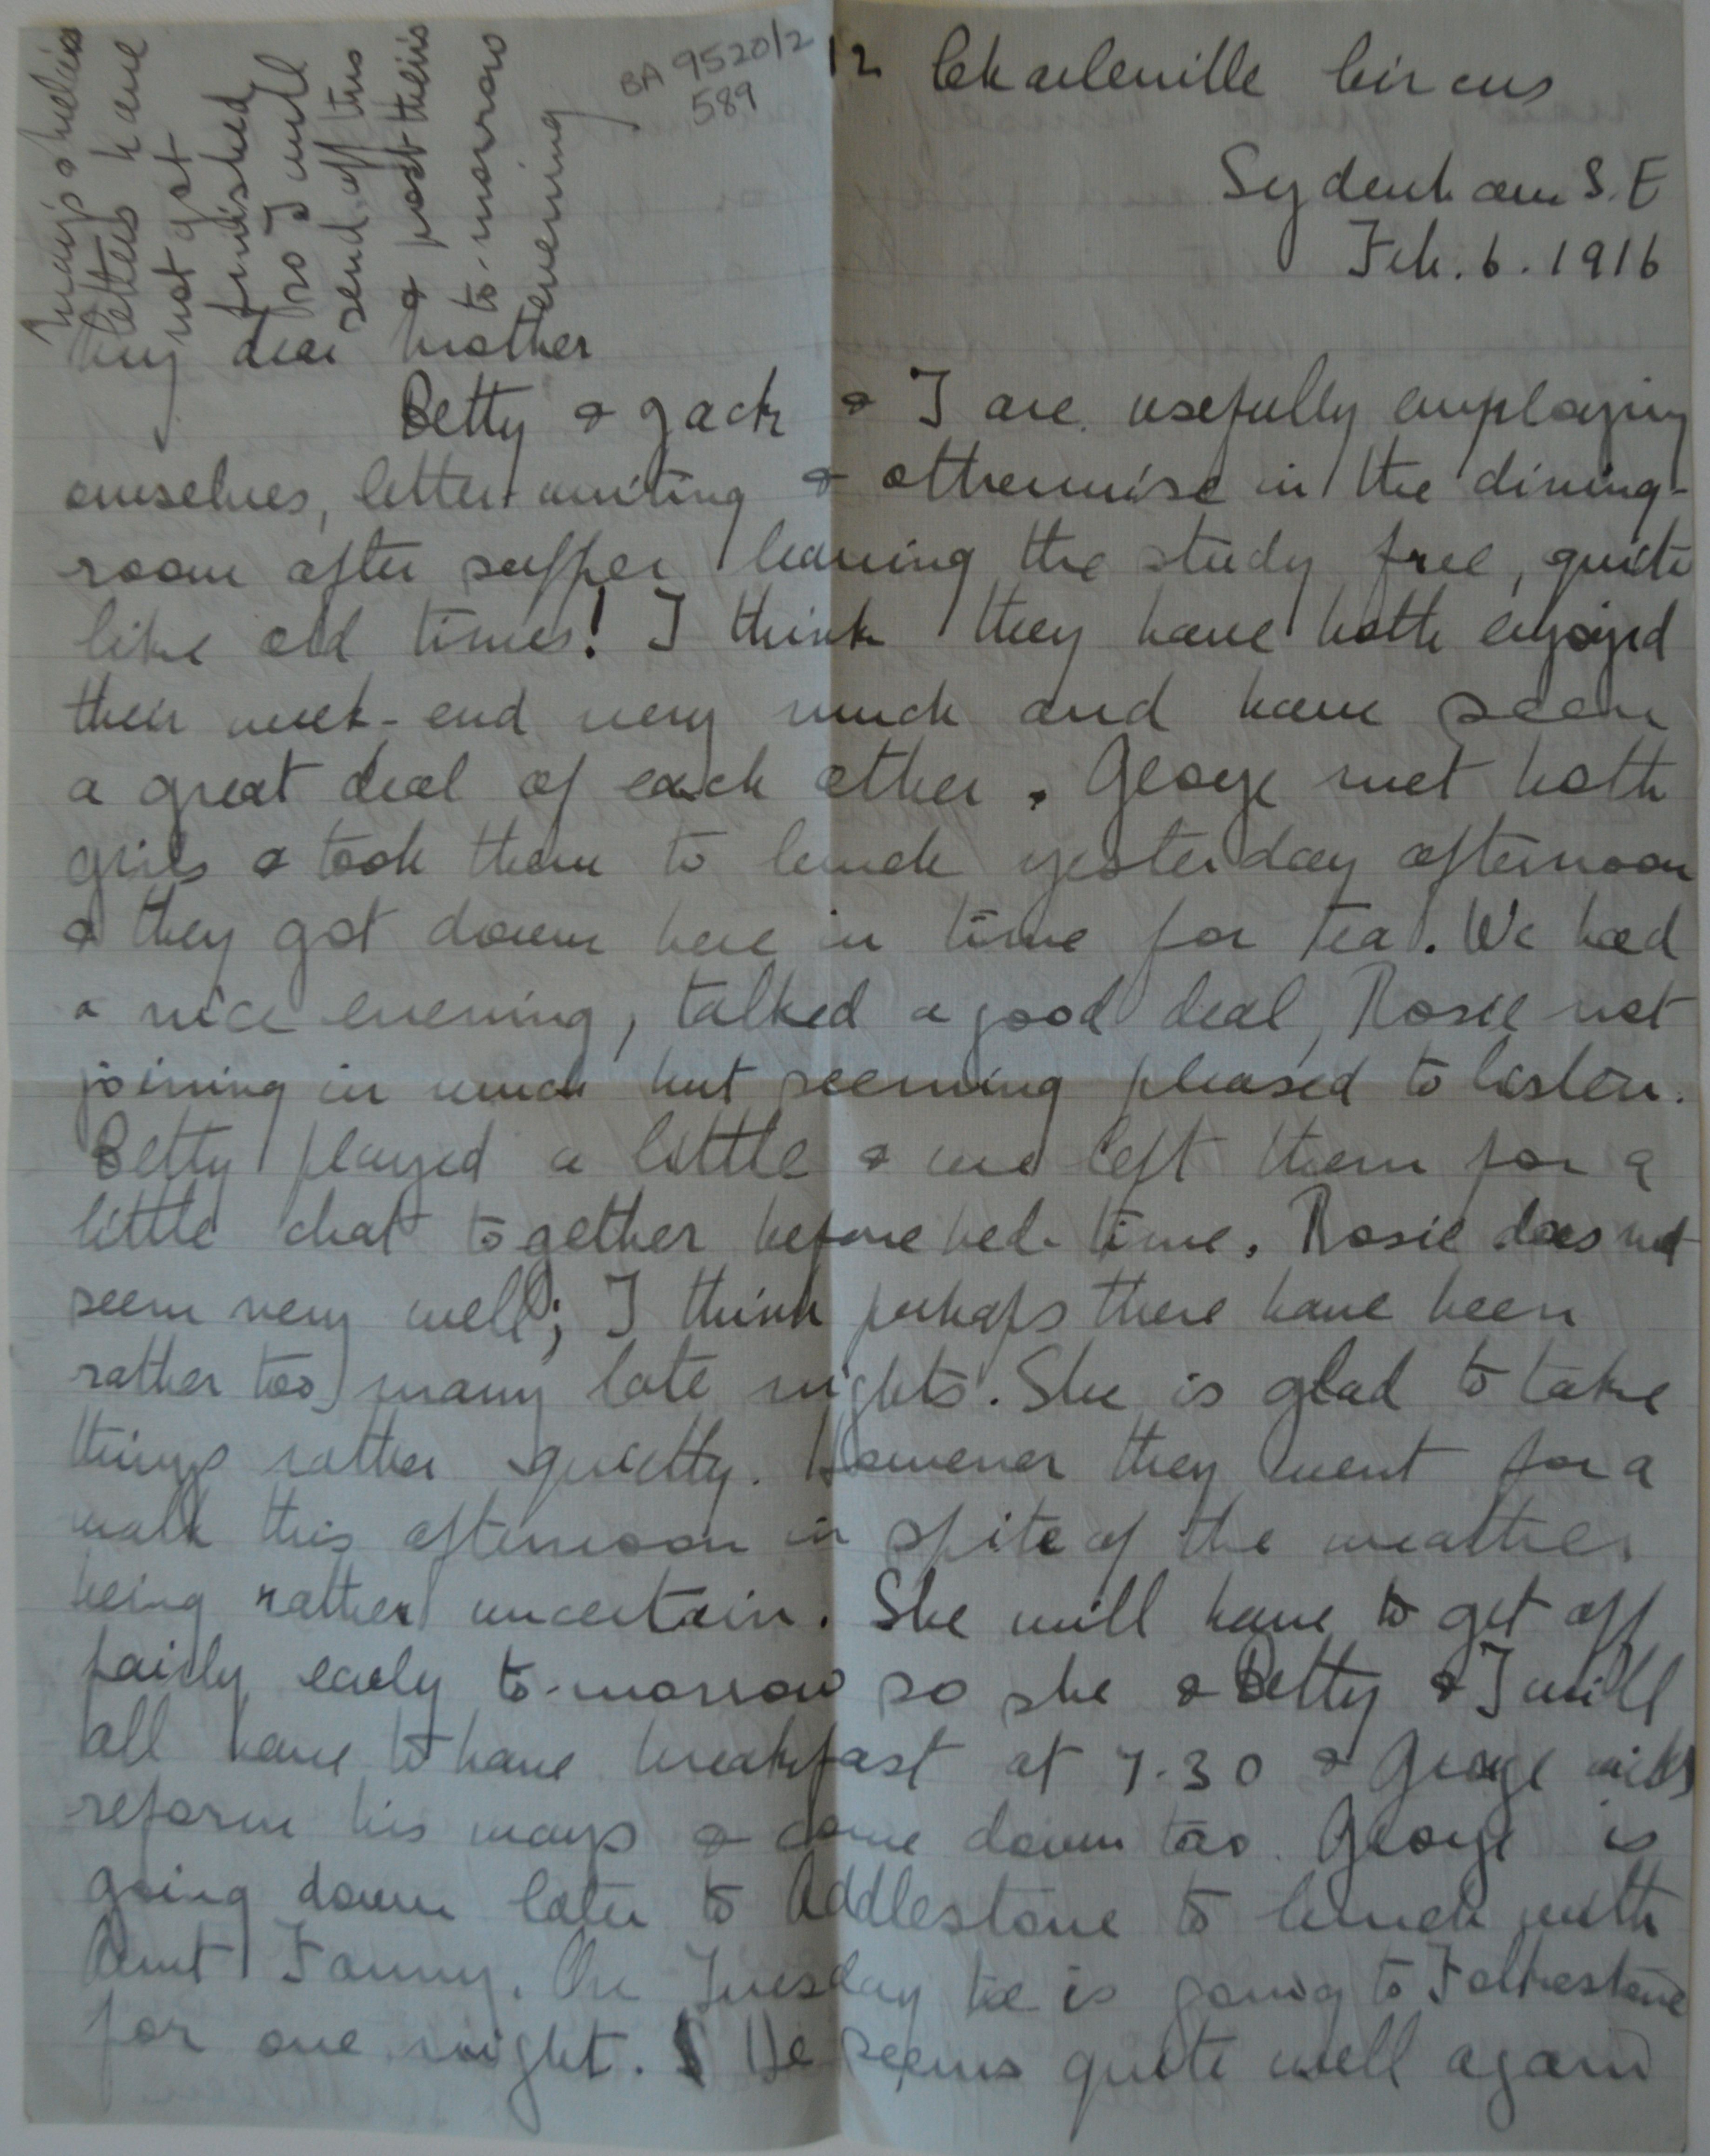 BA 9520/2
589
12 Charleville Circus
Sydenham S.E
Feb. 6. 1916
letters have
not got
finished
so I will
send off this
& post theirs
to-morrow
evening
My dear Mother
Betty & Jack & I are usefully employing
ourselves, letter writing & otherwise in the dining-
room after supper leaving the study free, quite
like old times! I think they have both enjoyed
their week-end very much and have seen
a great deal of each other. George met both
girls & took them to lunch yesterday afternoon
& they got down here in time for tea. We had
a nice evening, talked a good deal, Rosie not
joining in much but seeming pleased to listen.
Betty played a little & we left them for a
little chat together before bed-time. Rosie does not
seem very well; I think perhaps there have been
rather too many late nights. She is glad to take
things rather quietly. However they went for a
walk this afternoon in spite of the weather
being rather uncertain. She will have to get off
fairly early to-morrow so she & Betty & I will
all have to have breakfast at 7.30 & George will
reform his ways & come down too. George is
going down later to Addlestone to lunch with
Aunt Fanny. On Tuesday he is going to Folkestone
for one night. He seems quite well again